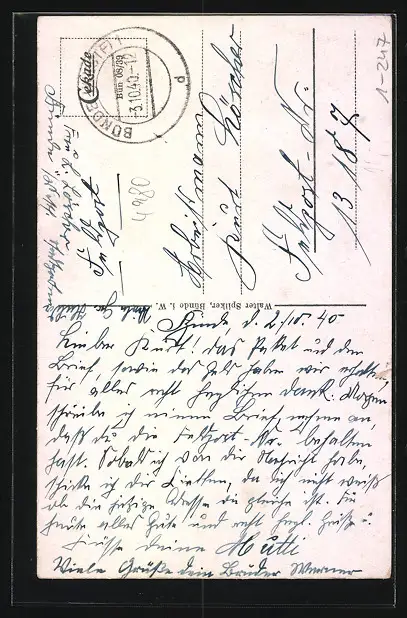 BÜNDE
-3.10.40.-12
d
Bün 08/39
Cekade
Feldpost
Kurt Löscher
Feldpost-Nr.
13 187
1-247
4980
Walter Spilker, Bünde i. W.
Bünde, d. 2/10. 40
Lieber Kurt! das Paket und den
Brief, sowie das Geld haben wir erhalten
für alles recht herzlichen Dank. Morgen
schreibe ich einen Brief
daß du die Feldpost-Nr. behalten
hast. Sobald ich von dir Nachricht habe
schicke ich da ich nicht weiß
ob die jetzige Adresse die gleiche ist. Für
heute alles Gute und recht herzl. Grüße u.
Küsse deine Mutti
Viele Grüße dein Bruder Werner